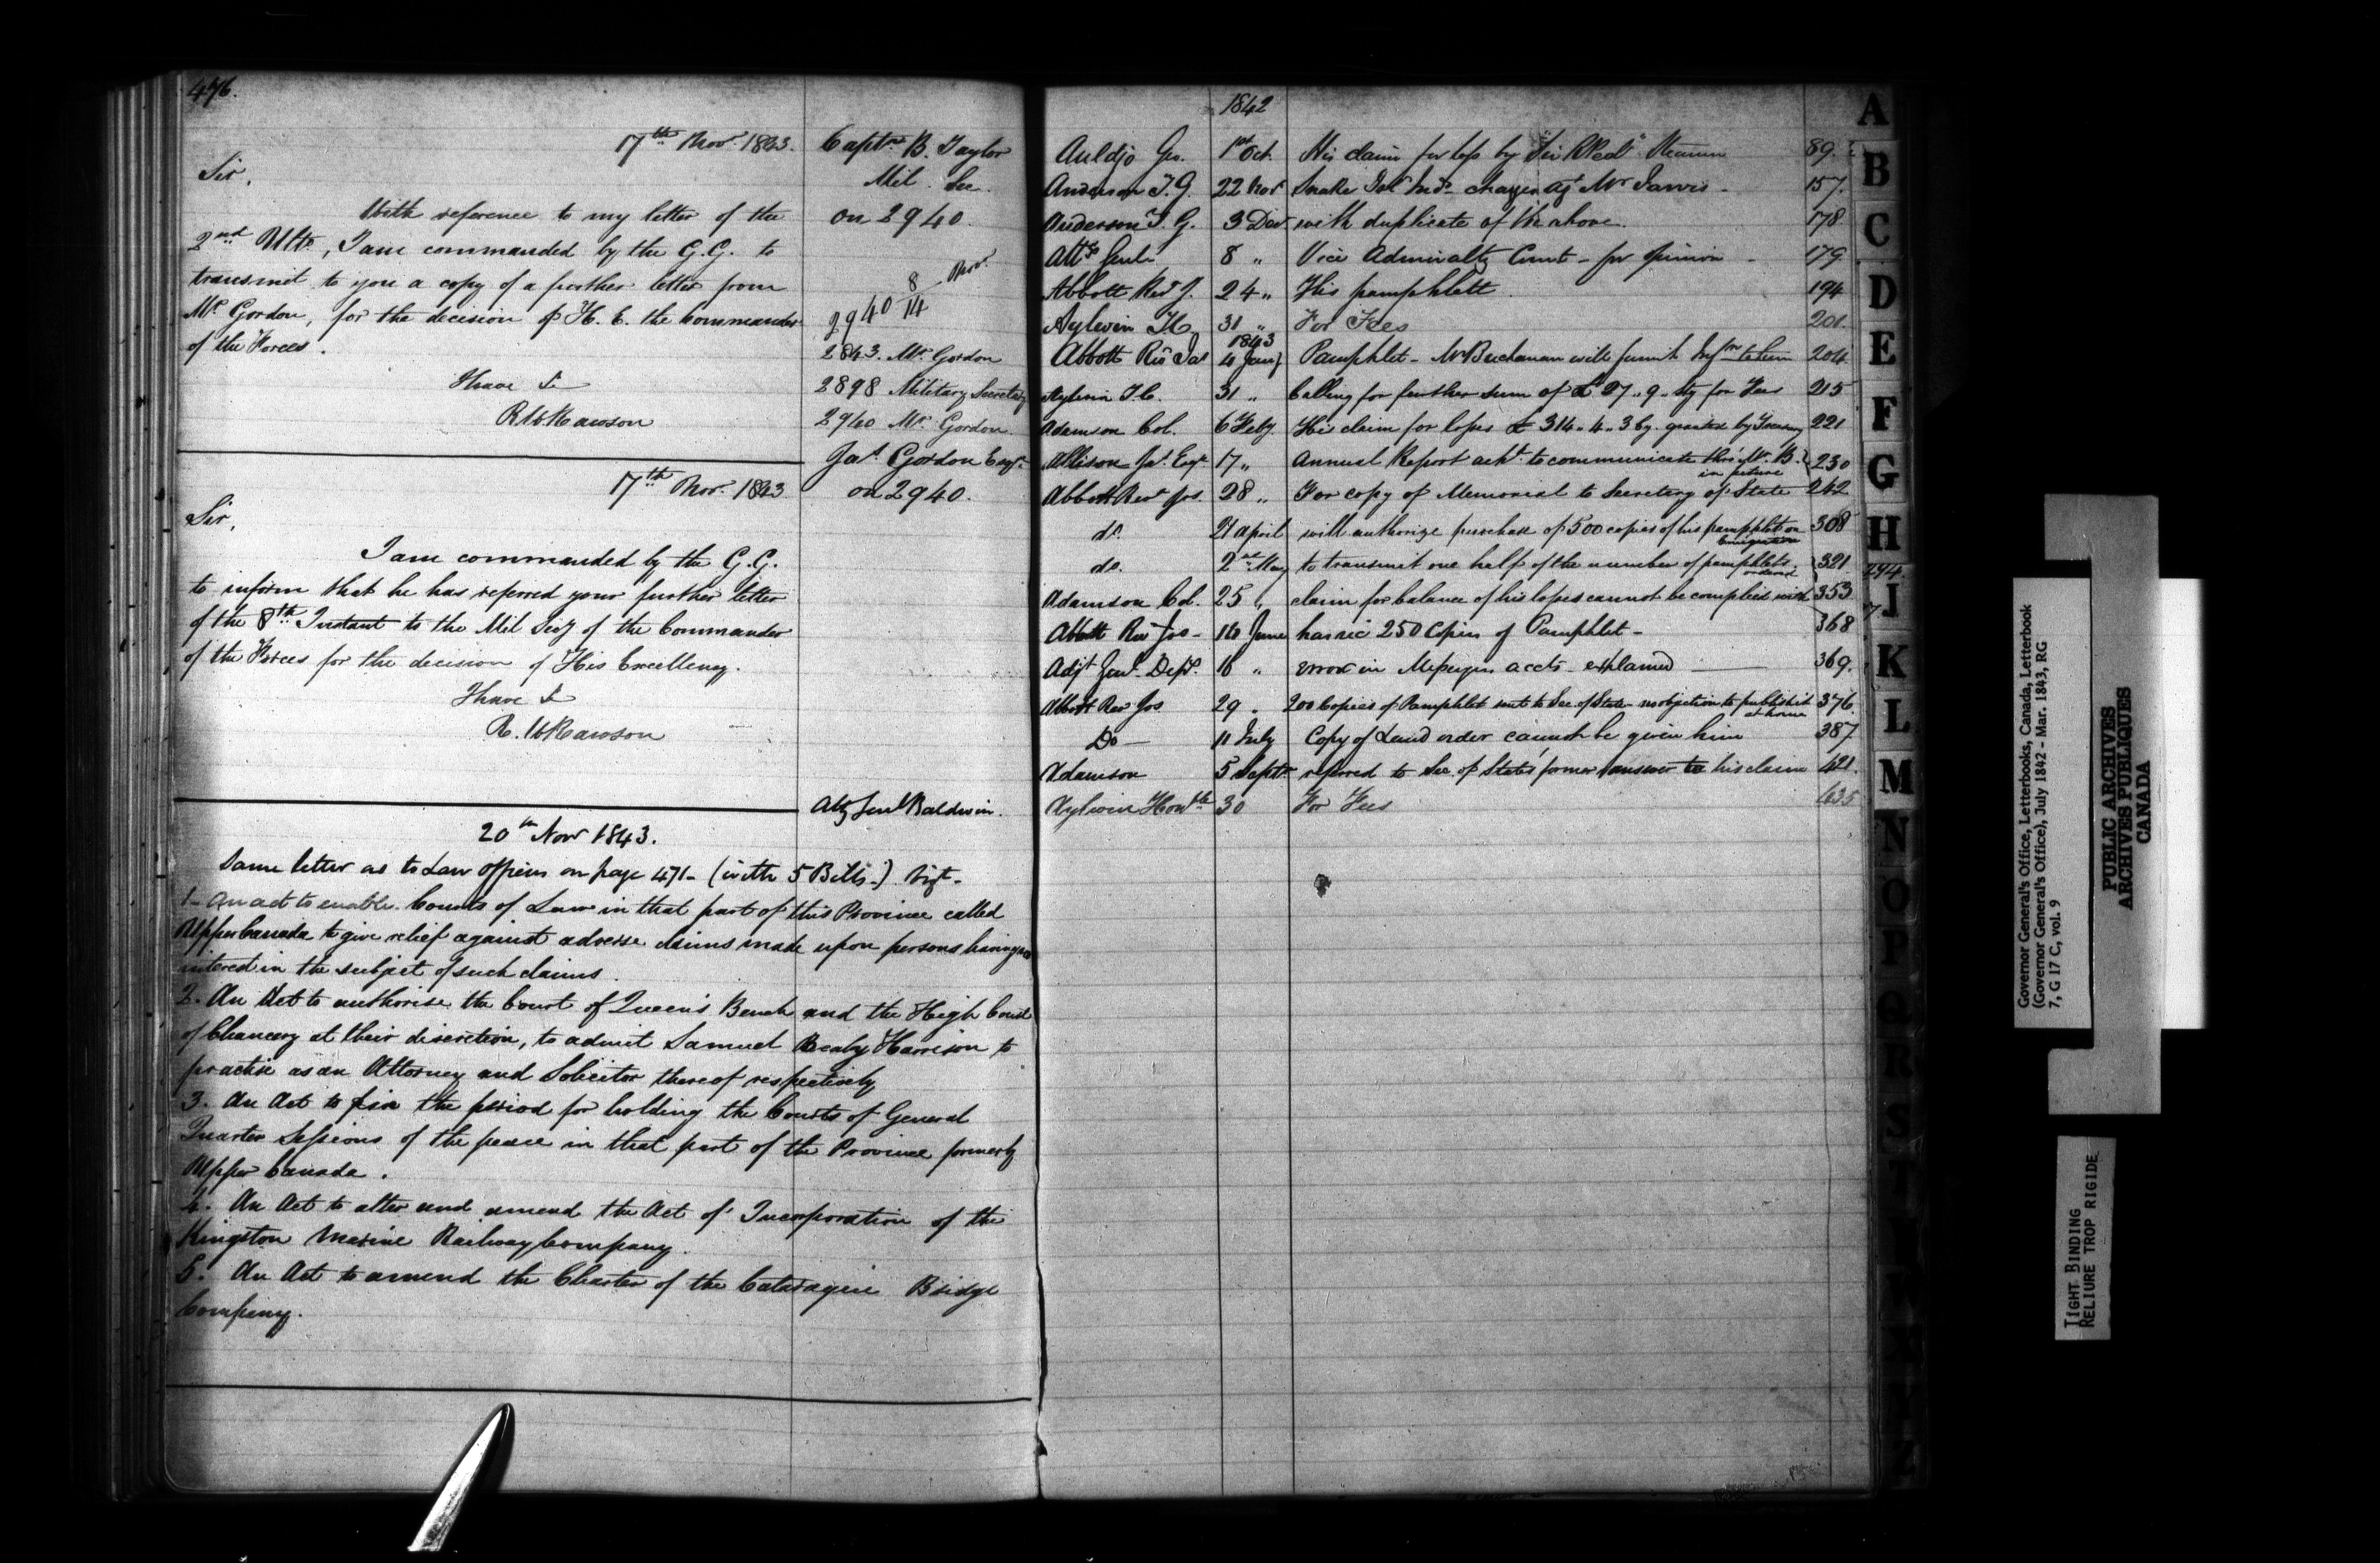 476.
17th Novr. 1843.
Captn. B. Taylor
Mil. Sec.
on 2940.
Sir,
With reference to my letter of the
2nd Ulto, I am commanded by the G.G. to
transmit to you a copy of a further letter from
Mr. Gordon, for the decision of H. E. the Commander
of the Forces.
I have &
R W Rawson
2940 8/14 Novr.
2843. Mr. Gordon
2898 Military Secretary
2940 Mr. Gordon
17th Novr. 1843
Jas. Gordon Esqr.
on 2940.
Sir,
I am commanded by the G.G.
to inform that he has referred your further letter
of the 8th Instant to the Mil Secy of the Commander
of the Forces for the decision of His Excellency.
I have &
R. W Rawson
Atty Genl Baldwin.
20th Novr 1843.
Same letter as to Law Officers on page 471 - (with 5 Bills -) Vizt -
1 - An act to enable Courts of Law in that part of this Province called
Upper Canada to give relief against adverse claims made upon persons having no
interest in the subject of such claims.
2. An Act to authorise the Court of Queen's Bench and the High Court
of Chancery at their discretion, to admit Samuel Bealy Harrison to
practise as an Attorney and Solicitor thereof respectively
3. An Act to fix the period for holding the Courts of General
Quarter Sessions of the peace in that part of the Province formerly
Upper Canada.
4. An Act to alter and amend the Act of Incorporation of the
Kingston Marine Railway Company.
5. An Act to amend the Charter of the Cataraqui Bridge
Company.
1842
Auldjo Geo. 1st Oct. His claim for loss by "Sir R Peel" Steamer 89.
Anderson T. G. 22 Novr Snake Isld Inds charges agt Mr Jarvis - 157.
Anderson T. G. 3 Decr with duplicate of the above. 178
Atty Genl 8 " Vice Admiralty Court - for opinion - 179
Abbott Revd J. 24 " His pamphlett 194
Aylwin T.C. 31 " For Fees 201.
1843
Abbott Revd Jos 4 Jany Pamphlet - Mr Buchanan will furnish Infmn to him 204
Aylwin T.C. 31 " Calling for further sum of £27 " 9 - Stg for Fees 215
Adamson Col. 6 Feby. His claim for losses £314 " 4 - 3 Cy. granted by Treasury 221
Allison Jas. Esqr 17 " Annual Report ackd. to communicate thro' Mr. B. 230
in future
Abbott Revd Jos. 28 " For copy of Memorial to Secretary of State 242
do. 21 April will authorize purchase of 500 copies of his pamphlet on 308
Emigration
do. 2nd May to transmit one half of the number of pamphlets 321
ordered
Adamson Col. 25 " claim for balance of his losses cannot be complied with 353
Abbott Revd Jos - 10 June has rec 250 Copies of Pamphlet - 368
Adjt Genl Dept. 16 " error in Messengers accts explained 369.
Abbott Revd Jos 29 " 200 Copies of Pamphlet sent to Sec of State - no objection to publish it 376.
at home
Do - 11 July Copy of Land order cannot be given him 387
Adamson 5 Septr referred to Sec. of State's former answer to his claim 421.
Aylwin Honble 30 For Fees 435
A
B
C
D
E
F
G
H
I
K
L
M
N
O
P
Q
R
S
T
Governor General's Office, Letterbooks, Canada, Letterbook
(Governor General's Office), July 1842 - Mar. 1843, RG
7, G 17 C, vol. 9
PUBLIC ARCHIVES
ARCHIVES PUBLIQUES
CANADA
TIGHT BINDING
RELIURE TROP RIGIDE